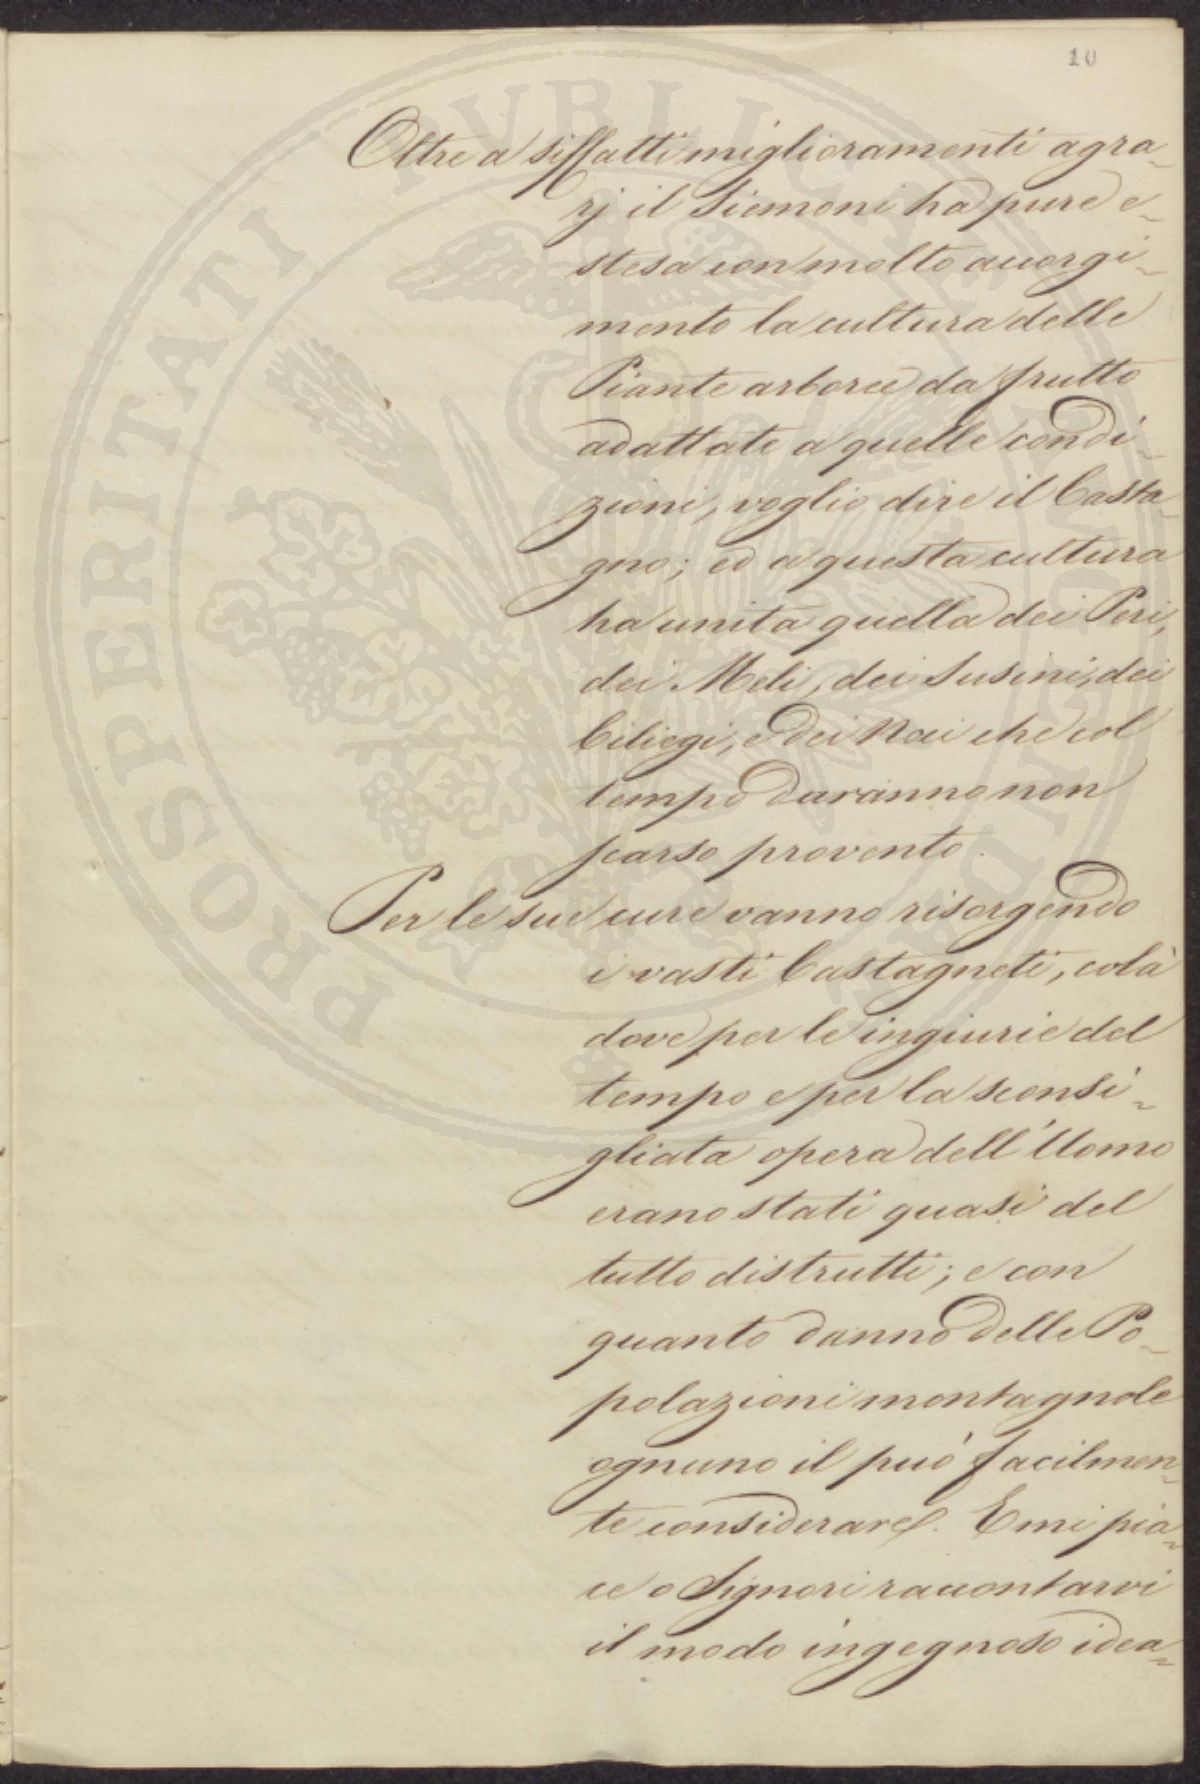 10
Oltre a siffatti miglioramenti agra=
rj il Siemoni ha pure e=
stesa con molto accorgi=
mento la cultura delle
Piante arboree da frutto
adattate a quelle condi=
zioni, voglio dire il Casta=
gno; ed a questa cultura
ha unita quella dei Peri,
dei Meli, dei Susini, dei
Ciliegi, e dei Noci che col
tempo daranno non
scarso provento.
Per le sue cure vanno risorgendo
i vasti Castagneti, colà
dove per le ingiurie del
tempo e per la sconsi=
gliata opera dell'Uomo
erano stati quasi del
tutto distrutti; e con
quanto danno delle Po=
polazioni montagnole
ognuno il può facilmen=
te considerare. E mi pia=
ce o Signori raccontarvi
il modo ingegnoso idea=
PROSPERITATI PVBLICAE AVGENDAE